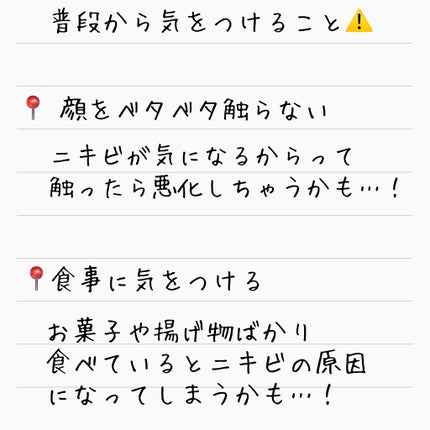 普段から気をつけること⚠️
📍 顔をベタベタ触らない
ニキビが気になるからって
触ったら悪化しちゃうかも…！
📍食事に気をつける
お菓子や揚げ物ばかり
食べているとニキビの原因
になってしまうかも…！